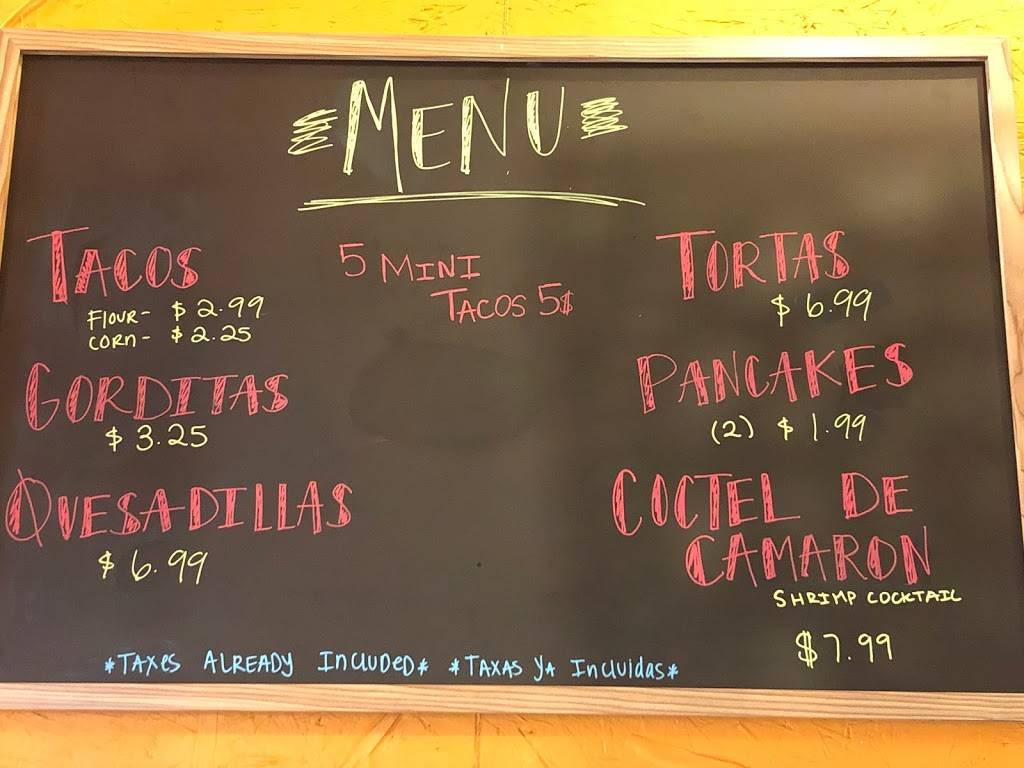 MENU
TACOS
FLOUR- $ 2.99
CORN- $ 2.25
GORDITAS
$ 3.25
QUESADILLAS
$ 6.99
5 MINI
TACOS 5$
TORTAS
$ 6.99
PANCAKES
(2) $ 1.99
COCTEL DE
CAMARON
SHRIMP COCKTAIL
$7.99
*TAXES ALREADY INCLUDED* *TAXAS YA INCLUIDAS*